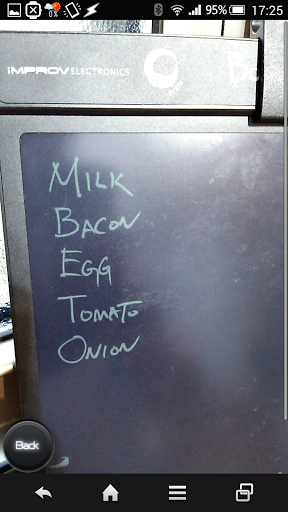 95% 17:25
iMPROV ELECTRONICS
MILK
BACON
EGG
TOMATO
ONION
Back